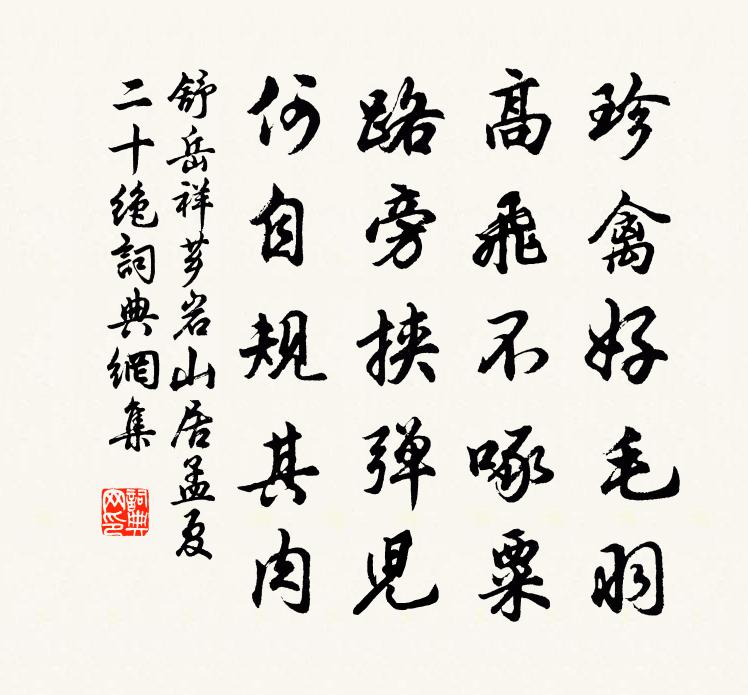 珍禽好毛羽
高飛不啄粟
路旁挾弹児
何自規其肉
舒岳祥芗岩山居孟夏
二十絶詞典網集
詞典
网印